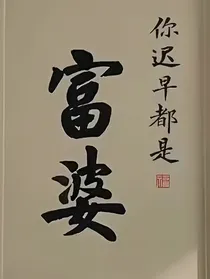 你迟早都是
富婆